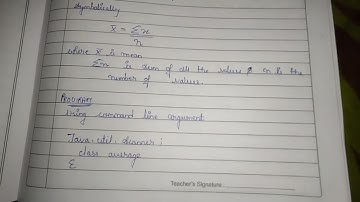 Symbolically
x̄ = Σx
n
where x̄ is mean
Σx is sum of all the values & n is the
number of values.
PROGRAM
Using command line argument
Java.util.Scanner;
class average
{
Teacher's Signature